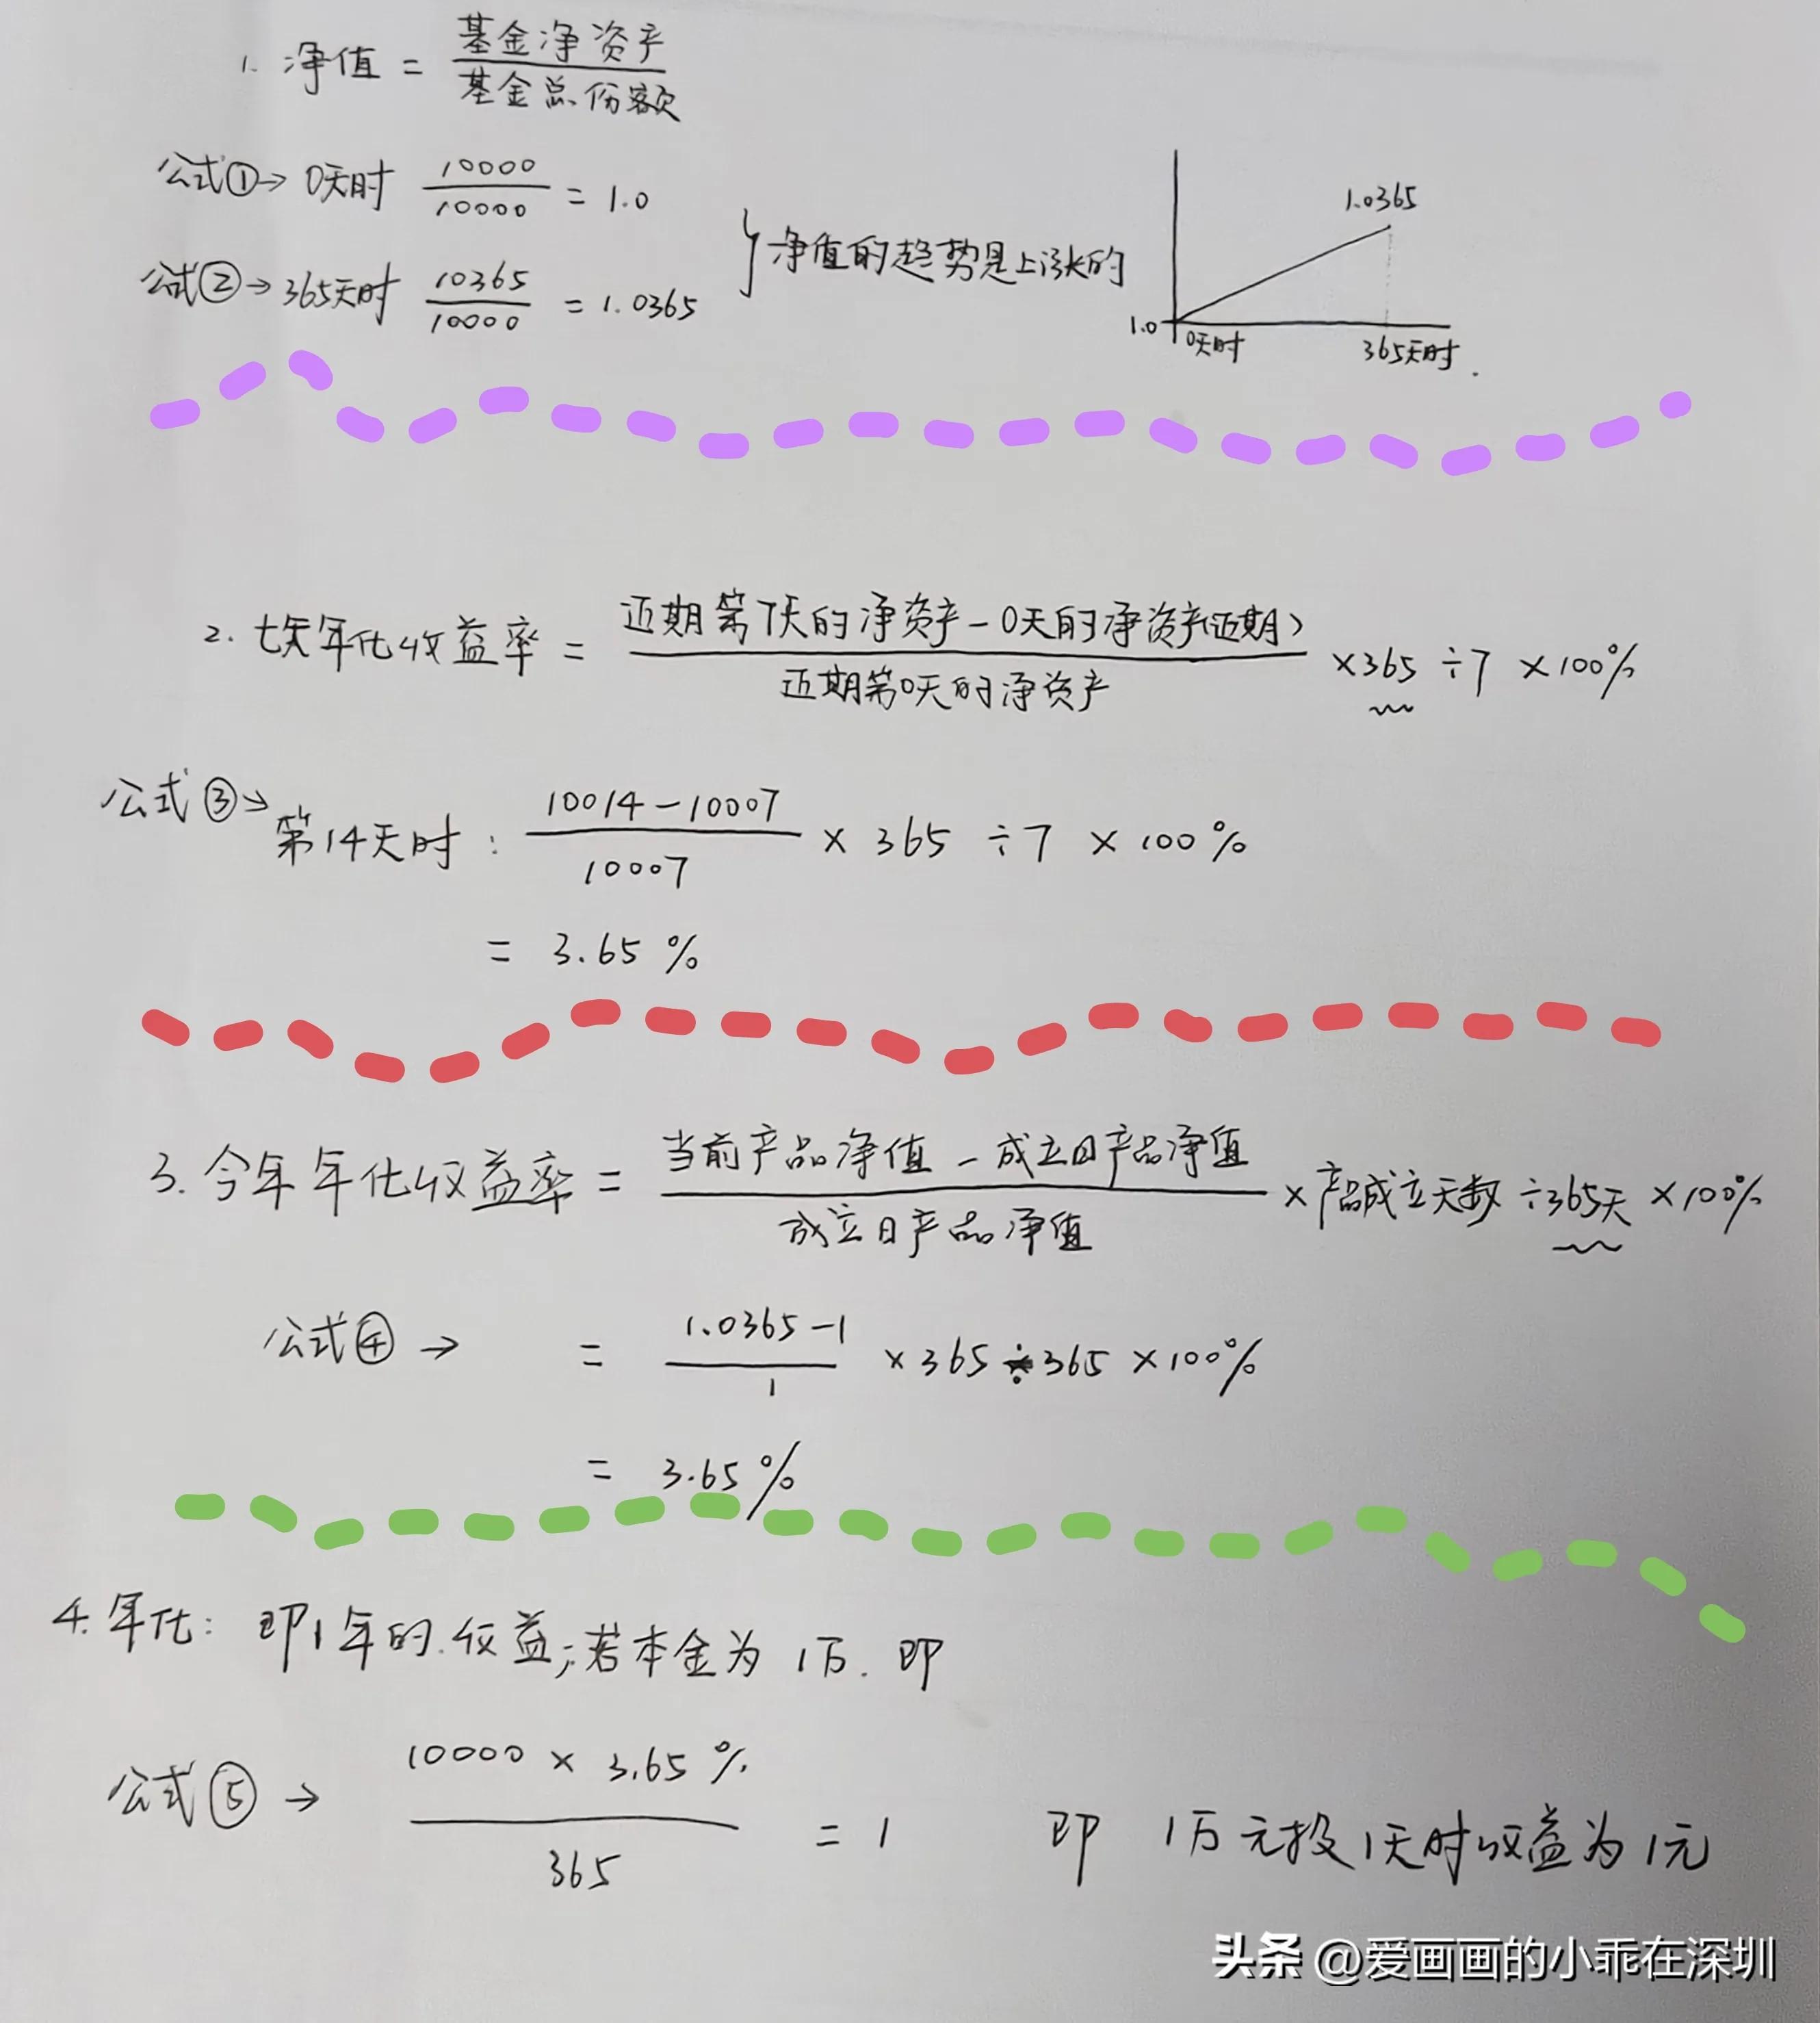 1. 净值 = 基金净资产 / 基金总份额
公式①→ 0天时 10000 / 10000 = 1.0
公式②→ 365天时 10365 / 10000 = 1.0365
} 净值的趋势是上涨的
1.0365
1.0
0天时 365天时.
2. 七天年化收益率 = 近期第7天的净资产 - 0天的净资产(近期) / 近期第0天的净资产 × 365 ÷7 × 100%
公式③→ 第14天时: 10014 - 10007 / 10007 × 365 ÷7 × 100%
= 3.65 %
3. 今年年化收益率 = 当前产品净值 - 成立日产品净值 / 成立日产品净值 × 产品成立天数 ÷365天 × 100%
公式④→ = 1.0365 - 1 / 1 × 365 ÷ 365 × 100%
= 3.65 %
4. 年化: 即1年的.收益;若本金为 1万. 即
公式⑤→ 10000 × 3.65 % / 365 = 1 即 1万元投1天时收益为1元
头条 @爱画画的小乖在深圳